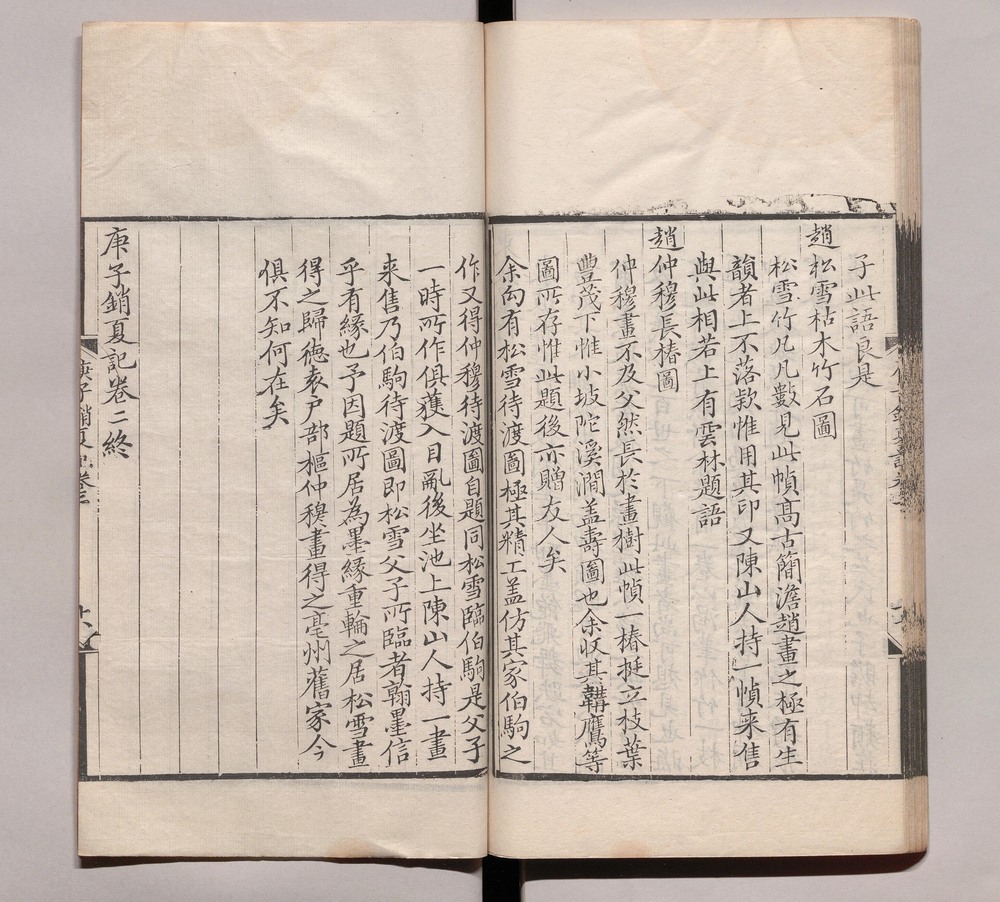 子此語良是
趙松雪枯木竹石圖
松雪竹凡凡數見此幀髙古簡澹趙畫之極有生
韻者上不落欵惟用其印又陳山人持一幀来售
與此相若上有雲林題語
趙仲穆長椿圖
仲穆畫不及父然長於畫樹此幀一椿挺立枝葉
豐茂下惟小坡陀溪澗盖壽圖也余收其韝鷹等
圖所存惟此題後亦贈友人矣
余向有松雪待渡圖極其精工盖仿其家伯駒之
作又得仲穆待渡圖自題同松雪臨伯駒是父子
一時所作俱獲入目亂後坐池上陳山人持一畫
来售乃伯駒待渡圖即松雪父子所臨者翰墨信
乎有緣也予因題所居為墨緣重輪之居松雪畫
得之歸徳袁户部樞仲穆畫得之亳州舊家今
俱不知何在矣
庚子銷夏記卷二終
庚子銷夏記卷二